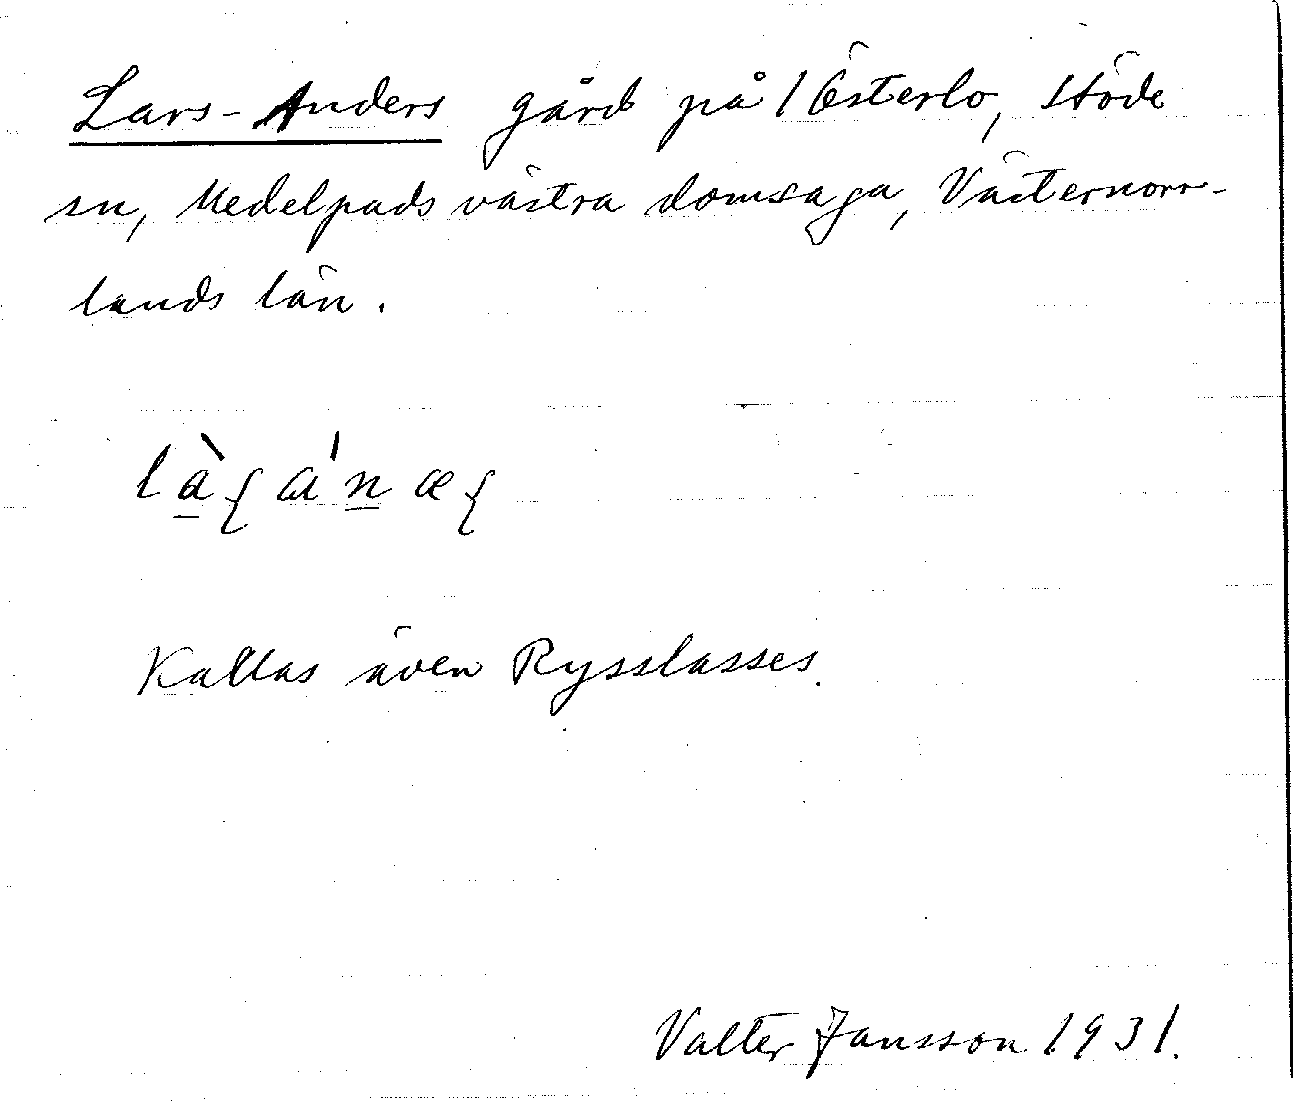 Lars-Anders gård på 1 Österlo, Stöde
sn, Medelpads västra domsaga, Västernorr-
lands län.
Kallas även Rysslasses.
Valter Jansson 1931.